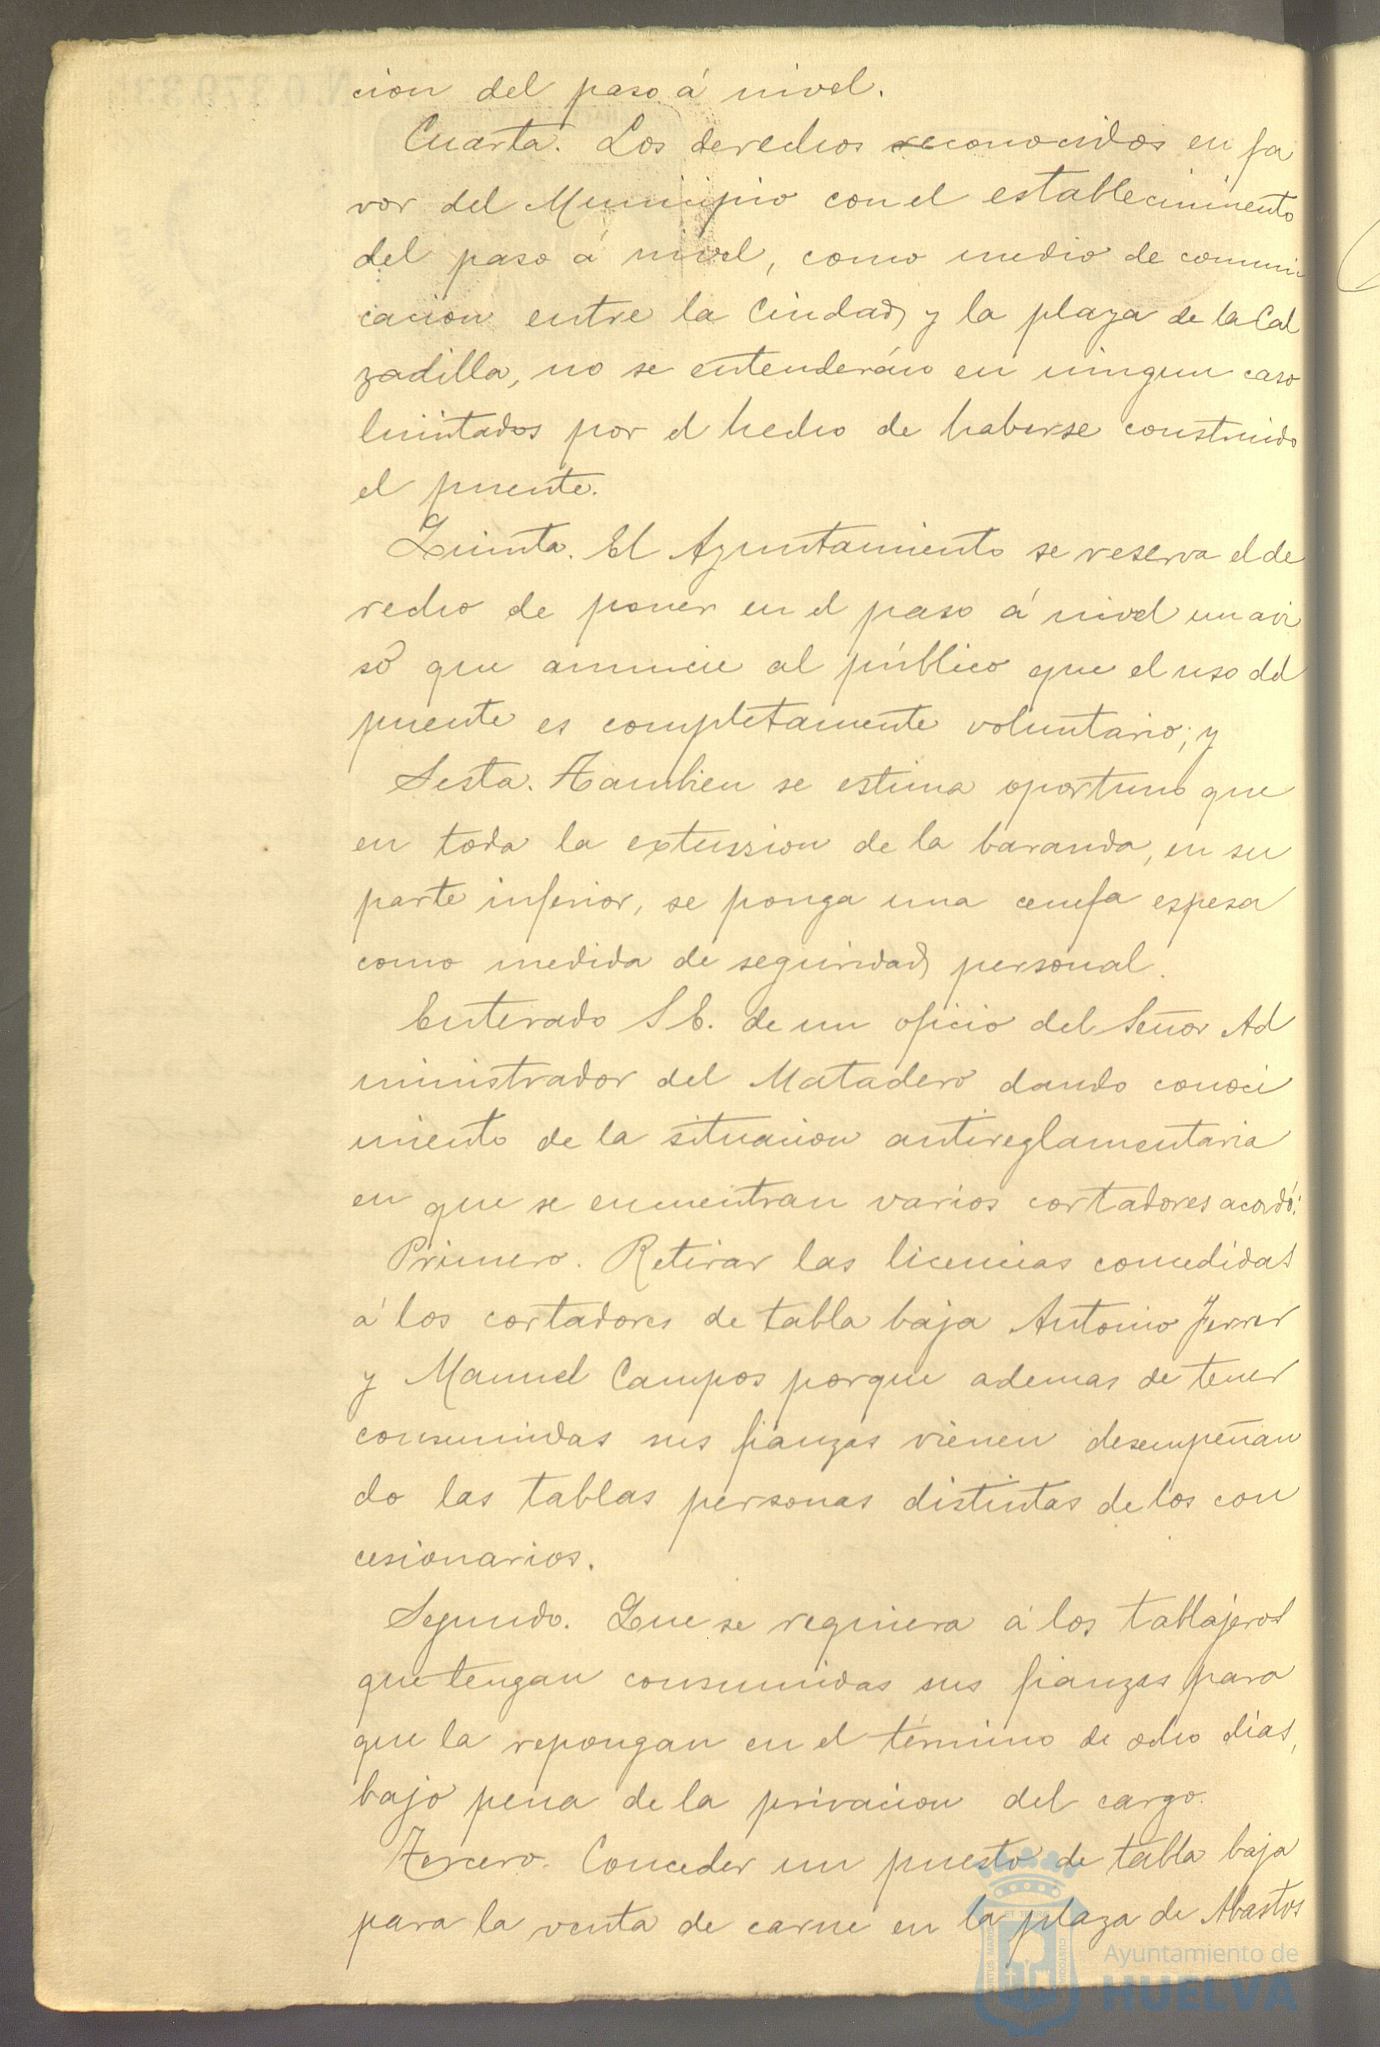 cion del paso á nivel.
Cuarta. Los derechos reconocidos en fa
vor del Municipio con el establecimiento
del paso á nivel, como medio de comuni
cacion entre la Ciudad y la plaza de la Cal
zadilla, no se entenderán en ningun caso
limitados por el hecho de haberse construido
el puente.
Quinta. El Ayuntamiento se reserva el de
recho de poner en el paso á nivel un avi
so que anuncie al público que el uso del
puente es completamente voluntario; y
Sesta. Tambien se estima oportuno que
en toda la extension de la baranda, en su
parte inferior, se ponga una cenefa espesa
como medida de seguridad personal.
Enterado S. E. de un oficio del Señor Ad
ministrador del Matadero dando conoci
miento de la situacion antireglamentaria
en que se encuentran varios cortadores acordó:
Primero. Retirar las licencias concedidas
á los cortadores de tabla baja Antonio Ferrer
y Manuel Campos porque ademas de tener
consumidas sus fianzas vienen desempeñan
do las tablas personas distintas de los con
cesionarios.
Segundo. Que se requiera á los tablajeros
que tengan consumidas sus fianzas para
que la repongan en el término de ocho dias,
bajo pena de la privacion del cargo.
Tercero. Conceder un puesto de tabla baja
para la venta de carne en la plaza de Abastos
Ayuntamiento de
HUELVA